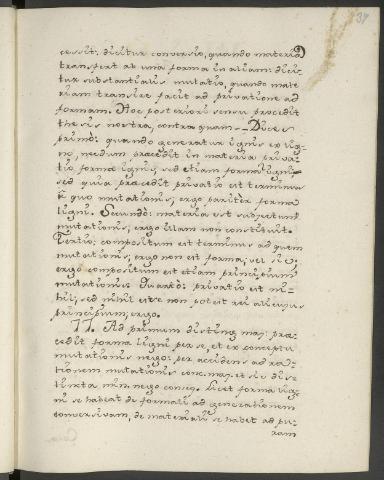 39
cessit: dicitur conversio, quando materia
transfert ab una forma in aliam: dici-
tur substantialis mutatio, quando mate
riam transire facit ad privatione ad
formam. Hoc posteriori sensu procedit
thesis nostra, contra quam _ Dices
primò: quando generatur ignis ex lig-
no, nedum praecedit in materia priva-
tio formae ignis, sed etiam forma ligni,
sed quia praecedit privatio est terminus
a quo mutationis, ergo pariter forma
ligni. Secundò: materia est subjectum
mutationis, ergo illam non constituit.
Tertio: compositum est terminus ad quem
mutationis, ergo non est forma; vel sic:
ergo compositum est etiam principium
mutationis. Quartò: privatio est ni-
hil; sed nihil esse non potest rei alicujus
principium, ergo.
77. Ad primum disting. maj: prae-
cedit forma ligni per se, et ex conceptu
mutationis nego: per accidens ad ra-
tionem mutationis conc. maj. et sic dis-
tincta min. nego conseq. Licet forma lig-
ni se habeat de formali ad generationem
conversivam, de materiali se habet ad pu-
ram